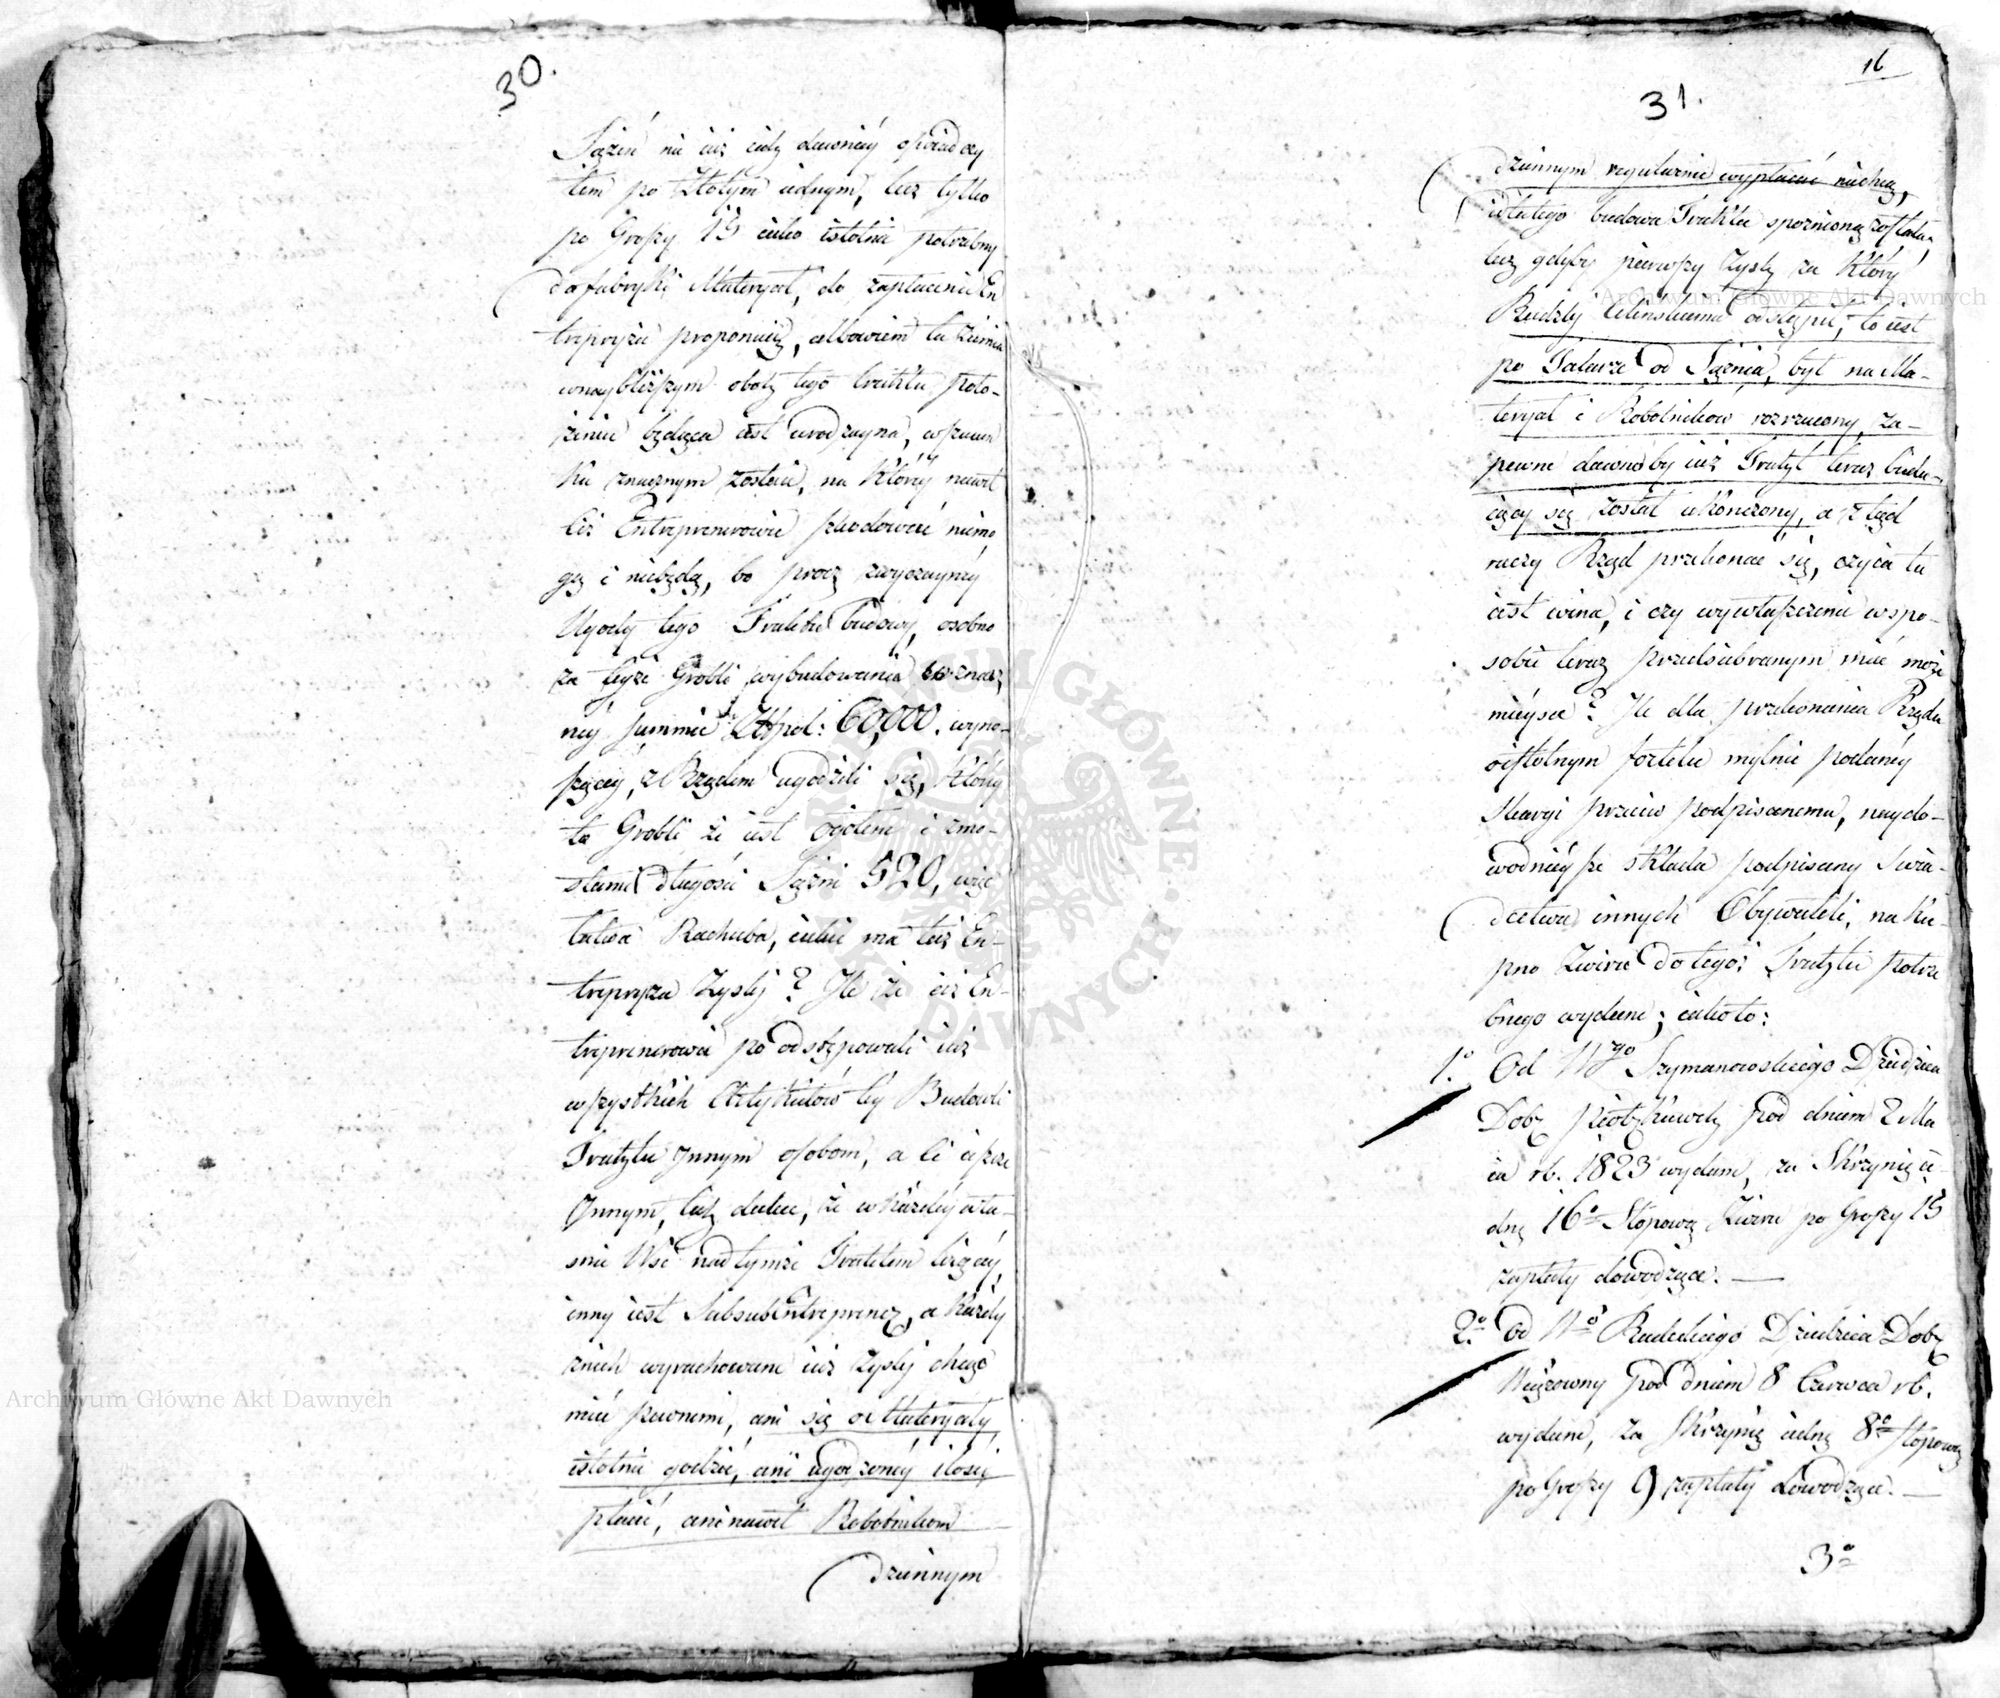 30.
Sążeń nie iuż iak dawniéy oświadczy
łem po Złotym iednym, lecz tylko
po Groszy 15 iako istotnie potrzebny
do fabryki Materyał, do zapłacenia En
trepryzie proponuię, albowiem ta ziemia
w naybliższym obok tego traktu poło-
żeniu będąca iest urodzayna, w szacun
ku znacznym zostaie, na który nawet
też Entreprenerowie szkodować niemo
gą i niebędą, bo procz zwyczayney
Ugody tego Traktu budowy, osobno
za teyże Grobli wybudowanie w znacz
néy summie Złł pol: 60,000. wyno-
szącéy, z Rządem ugodzili się, która
to Grobli że iest ogółem i z mo-
stami długości Sążni 520, więc
łatwa Rachuba, iakie ma też En-
trepryza Zyski? Ile że iuż En-
treprenerowie poodstępowali iuż
wszystkich Artykułów téy Budowli
Traktu Innym osobom, a ci ieszcze
Innym, tak dalece, że w każdéy wła-
śnie Wsi nad tymże Traktem leżącéy
inny iest SubsubEntreprener, a każdy
z nich wyrachowane iuż zyski chcąc
mieć pewnemi, ani się o Materyały
istotnie godzić, ani ugodzonéy ilości
płacić, ani nawet Robotnikom
dziennym
16
31.
dziennym regularnie wypłacać niechcą,
i dlatego budowa Traktu spoźnioną została,
lecz gdyby pierwszy Zysk za który
odstąpił, to iest
po Talarze od Sążnia, był na Ma-
teryał i Robotników rozrzucony, za-
pewne dawnoby iuż Trakt teraz budu-
iący się został ukończony, a ztąd
raczy Rząd przekonać się, czyia tu
iest wina, i czy wywłaszczenie w spo-
sobie teraz przedsiebranym mieć może
mieysce? Ile dla przekonania Rządu
o istotnym fortelu mylnie podanéy
Skargi przeciw podpisanemu, naydo-
wodniéysze składa podpisany Swia-
dectwa innych Obywateli, na ku-
pno Zwiru do tegoż Traktu potrze
bnego wydane; iakoto:
1.o Od Wgo Szymanowskiego Dziedzica
Dobr pod dniem 2 Ma
ia rb. 1823 wydane, za Skrzynię ie-
dnę 16o Stopową Zwiru po Groszy 15
zapłaty dowodzące. —
2.o Od Wo Rudzkiego Dziedzica Dobr
pod dniem 8 Czerwca rb.
wydane, za Skrzynię iednę 8o Stopową
po Groszy 9 zapłaty dowodzące. —
3o
Archiwum Główne Akt Dawnych
Archiwum Główne Akt Dawnych
ARCHIWUM GŁÓWNE AKT DAWNYCH